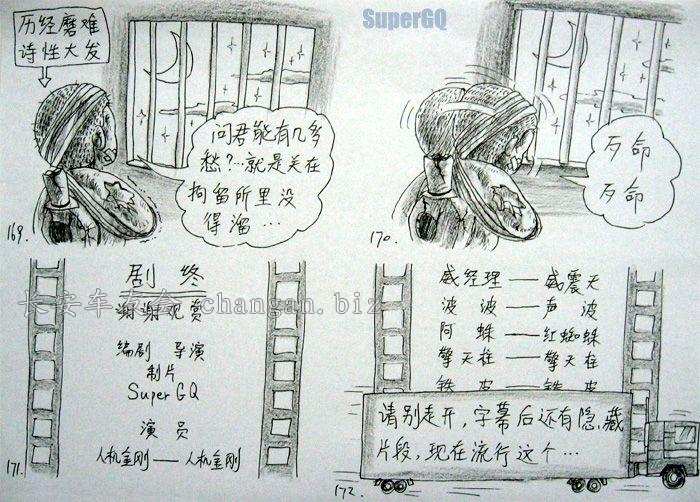 SuperGQ
历经磨难
诗性大发
问君能有几多
愁?…就是关在
拘留所里没
得溜…
169.
歹命
歹命
170.
剧终
谢谢观赏
编剧 导演
制片
SuperGQ
演员
人机金刚——人机金刚
171.
威经理——威震天
波波——声波
阿蛛——红蜘蛛
擎天柱——擎天柱
铁皮——铁皮
请别走开,字幕后还有隐藏
片段,现在流行这个…
172.
长安车友会 changan.biz